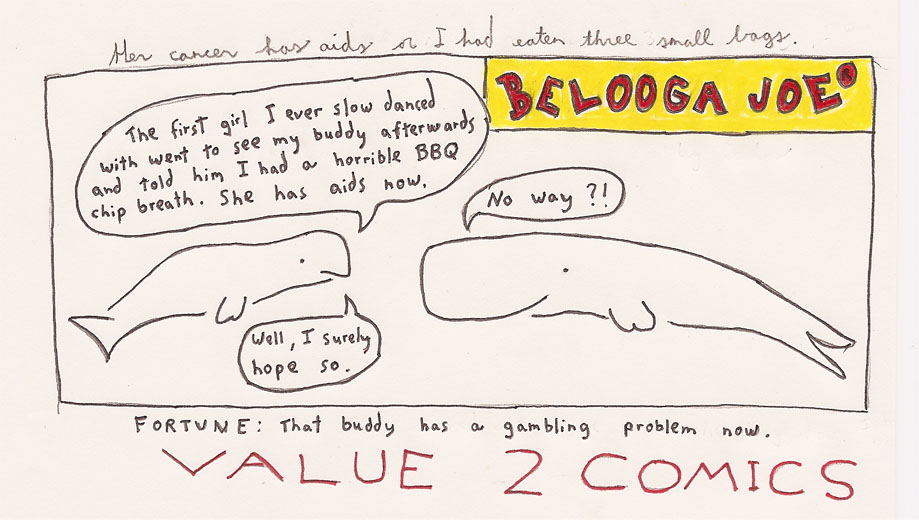 Her cancer has aids or I had eaten three small bags.
BELOOGA JOE®
The first girl I ever slow danced
with went to see my buddy afterwards
and told him I had a horrible BBQ
chip breath. She has aids now.
No way?!
Well, I surely
hope so.
FORTUNE: That buddy has a gambling problem now.
VALUE 2 COMICS